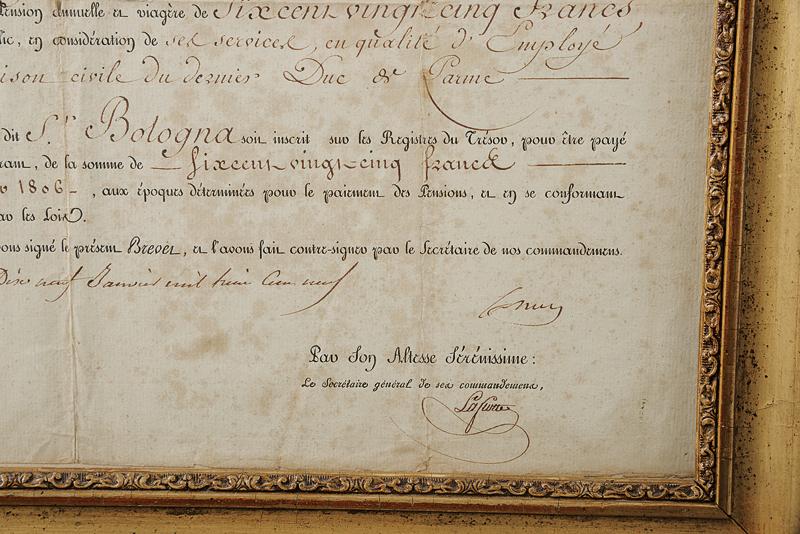 Pension annuelle et viagère de Sixcent vingt cinq Francs,
en considération de ses services, en qualité d'Employé
civile du dernier Duc de Parme
dit S.r Bologna soit inscrit sur les Registres du Trésor, pour être payé
de la somme de sixcent vingt cinq francs
1806, aux époques déterminées pour le paiement des Pensions, et en se conformant
les Loix.
signé le présent Brevet, et l'avons fait contre-signer par le Secrétaire de nos commandemens.
neuf Janvier mil huit Cent neuf
Par Son Altesse Sérénissime :
Le Secrétaire général de ses commandemens,